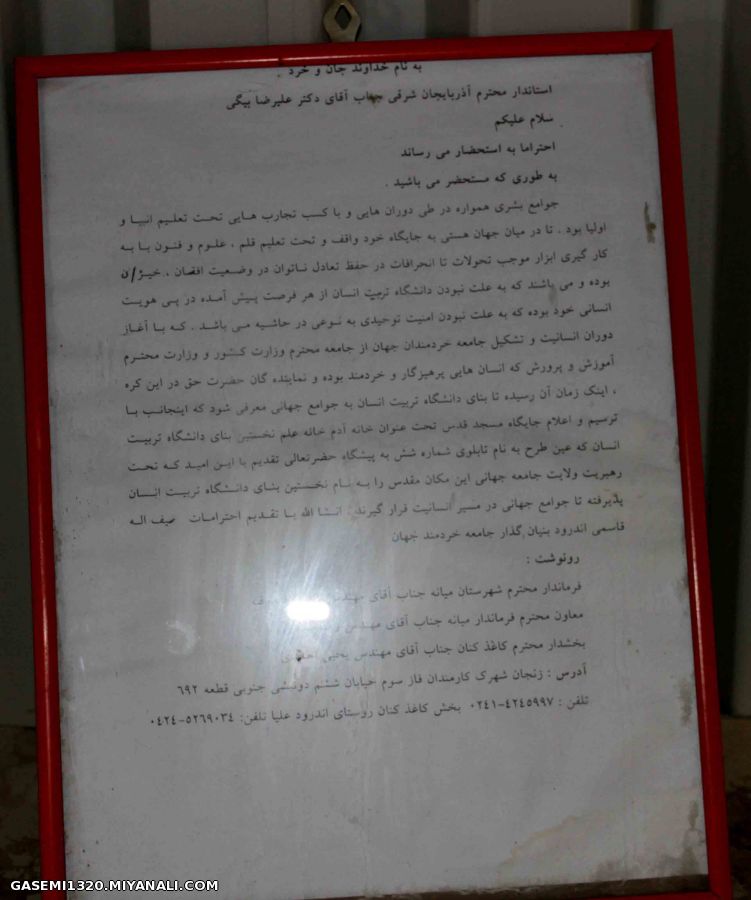 به نام خداوند جان و خرد .
استاندار محترم آذربایجان شرقی جناب آقای دکتر علیرضا بیگی
سلام علیکم
احتراما به استحضار می رساند
به طوری که مستحضر می باشید .
جوامع بشری همواره در طی دوران هایی و با کسب تجارب هایی تحت تعلیم انبیا و
اولیا بود . تا در میان جهان هستی به جایگاه خود واقف و تحت تعلیم قلم ، علوم و فنون با به
کار گیری ابزار موجب تحولات تا انحرافات در حفظ تعادل ناتوان در وضعیت افتان ، خیزان
بوده و می باشند که به علت نبودن دانشگاه تربیت انسان از هر فرصت پیش آمده در پی هویت
انسانی خود بوده که به علت نبودن امنیت توحیدی به نوعی در حاشیه می باشد . که با آغاز
دوران انسانیت و تشکیل جامعه خردمندان جهان از جامعه محترم وزارت کشور و وزارت محترم
آموزش و پرورش که انسان هایی پرهیزگار و خردمند بوده و نماینده گان حضرت حق در این کره
، اینک زمان آن رسیده تا بنای دانشگاه تربیت انسان به جوامع جهانی معرفی شود که اینجانب با
ترسیم و اعلام جایگاه مسجد قدس تحت عنوان خانه آدم خانه علم نخستین بنای دانشگاه تربیت
انسان که عین طرح به نام تابلوی شماره شش به پیشگاه حضرتعالی تقدیم با این امید که تحت
رهبریت ولایت جامعه جهانی این مکان مقدس را به نام نخستین بنای دانشگاه تربیت انسان
پذیرفته تا جوامع جهانی در مسیر انسانیت قرار گیرند . انشا الله با تقدیم احترامات صیف اله
قاسمی اندرود بنیان گذار جامعه خردمند جهان
رونوشت :
فرماندار محترم شهرستان میانه جناب آقای مهندس
معاون محترم فرماندار میانه جناب آقای مهندس
بخشدار محترم کاغذ کنان جناب آقای مهندس یحیی
آدرس : زنجان شهرک کارمندان فاز سوم خیابان ششم دونبشی جنوبی قطعه ۶۹۲
تلفن : ۴۲۴۵۹۹۷-۰۲۴۱ بخش کاغذ کنان روستای اندرود علیا تلفن: ۵۲۶۹۰۳۴-۰۴۲۴
GASEMI1320.MIYANALI.COM